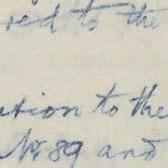 red to the
ation to the
No. 89 and